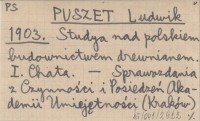 PS
PUSZET Ludwik
1903. Studya nad polskiem
budownictwem drewnianem.
I. Chata. — Sprawozdania
z Czynności i Posiedzeń Aka-
demii Umiejętności (Kraków)